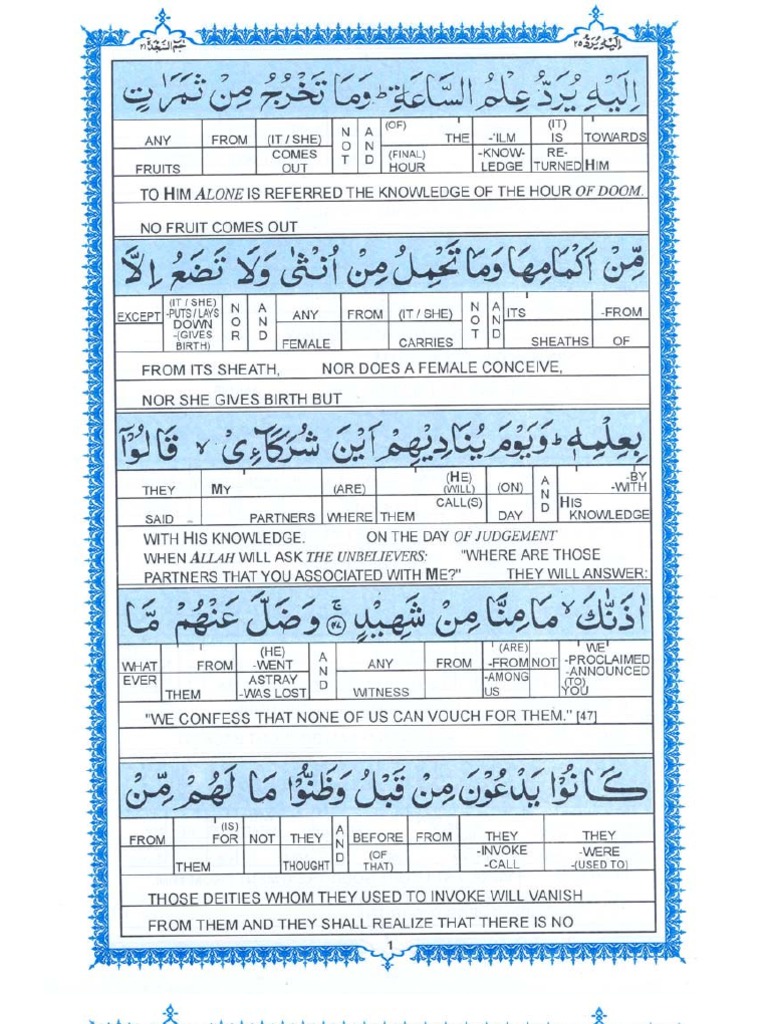 اِلَيْهِ يُرَدُّ ٢٥ حٰمٓ السَّجْدَة ٤١
اِلَيْهِ يُرَدُّ عِلْمُ السَّاعَةِ ؕ وَمَا تَخْرُجُ مِنْ ثَمَرٰتٍ
ANY FROM (IT / SHE) NOT AND (OF) THE -'ILM (IT) IS TOWARDS
FRUITS COMES OUT (FINAL) HOUR -KNOW-LEDGE RE-TURNED HIM
TO HIM ALONE IS REFERRED THE KNOWLEDGE OF THE HOUR OF DOOM.
NO FRUIT COMES OUT
مِّنْ اَكْمَامِهَا وَمَا تَحْمِلُ مِنْ اُنْثٰى وَلَا تَضَعُ اِلَّا
EXCEPT (IT / SHE) -PUTS / LAYS DOWN -(GIVES BIRTH) NOR AND ANY FROM (IT / SHE) NOT AND ITS -FROM
FEMALE CARRIES SHEATHS OF
FROM ITS SHEATH, NOR DOES A FEMALE CONCEIVE,
NOR SHE GIVES BIRTH BUT
بِعِلْمِهٖ ؕ وَيَوْمَ يُنَادِيْهِمْ اَيْنَ شُرَكَآءِىْ ۙ قَالُوْٓا
THEY MY (ARE) (HE) (WILL) (ON) AND -BY -WITH
SAID PARTNERS WHERE THEM CALL(S) DAY HIS KNOWLEDGE
WITH HIS KNOWLEDGE. ON THE DAY OF JUDGEMENT
WHEN ALLAH WILL ASK THE UNBELIEVERS: "WHERE ARE THOSE
PARTNERS THAT YOU ASSOCIATED WITH ME?" THEY WILL ANSWER:
اٰذَنّٰكَ ۙ مَا مِنَّا مِنْ شَهِيْدٍ ۚ ﴿٤٧﴾ وَضَلَّ عَنْهُمْ مَّا
WHAT FROM (HE) -WENT AND ANY FROM (ARE) -FROM NOT WE -PROCLAIMED -ANNOUNCED
EVER THEM ASTRAY -WAS LOST WITNESS -AMONG US (TO) YOU
"WE CONFESS THAT NONE OF US CAN VOUCH FOR THEM." [47]
كَانُوْا يَدْعُوْنَ مِنْ قَبْلُ وَظَنُّوْا مَا لَهُمْ مِّنْ
FROM (IS) FOR NOT THEY AND BEFORE FROM THEY THEY
THEM THOUGHT (OF THAT) -INVOKE -CALL -WERE -(USED TO)
THOSE DEITIES WHOM THEY USED TO INVOKE WILL VANISH
FROM THEM AND THEY SHALL REALIZE THAT THERE IS NO
1